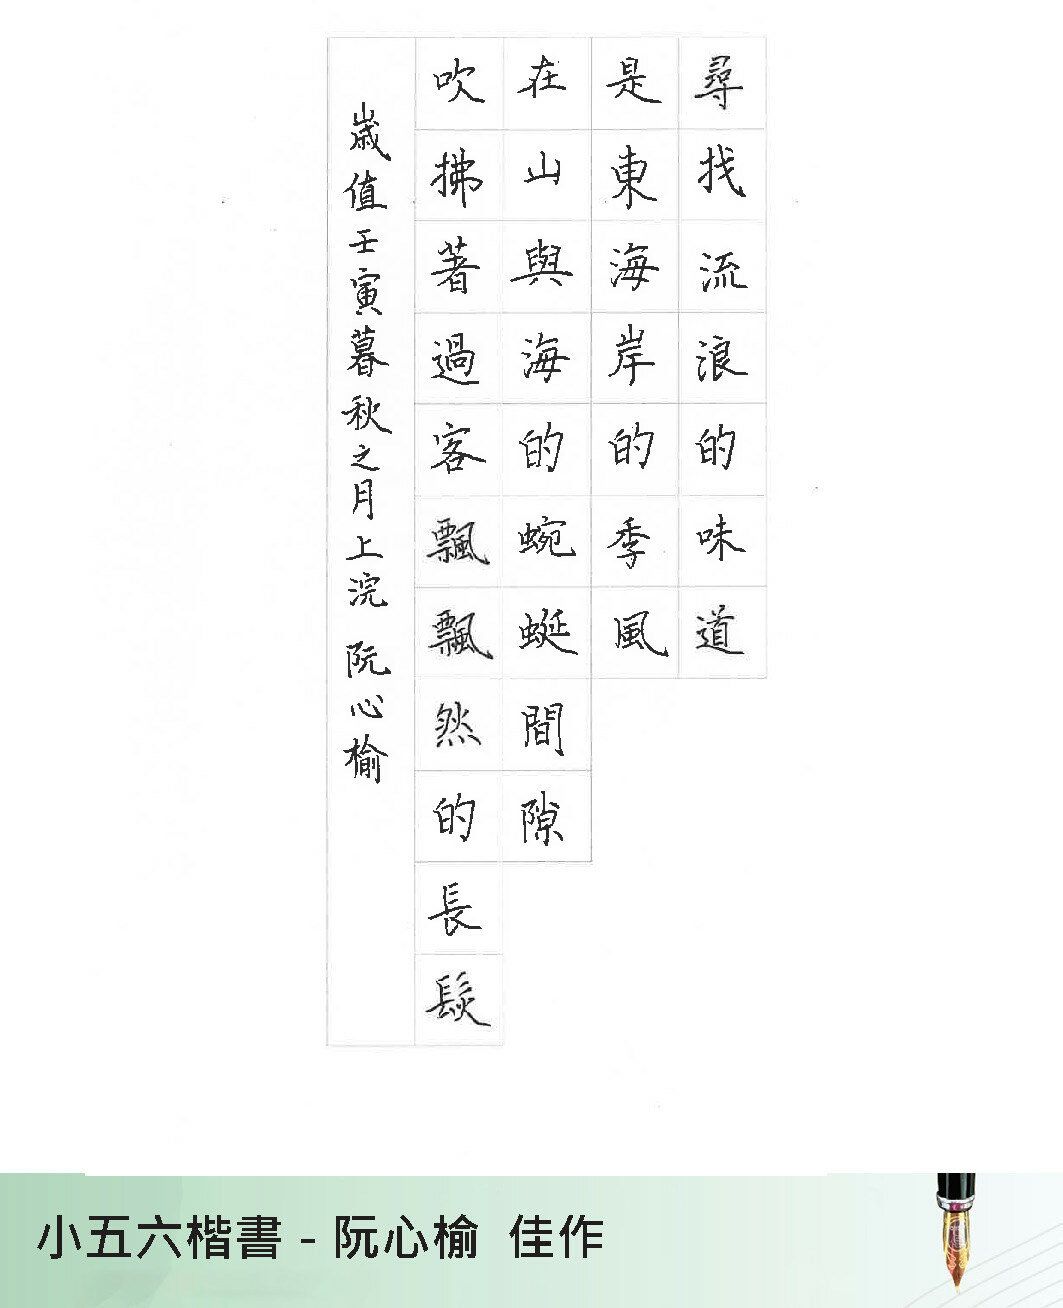 尋找流浪的味道
是東海岸的季風
在山與海的蜿蜒間隙
吹拂著過客飄飄然的長髮
歲值壬寅暮秋之月上浣 阮心榆
小五六楷書 - 阮心榆 佳作